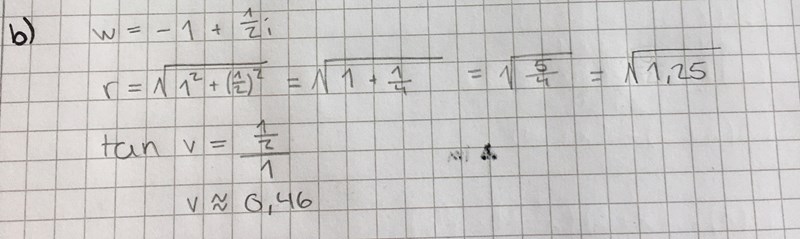 b) w = - 1 + 1/2 i
r = √(1² + (1/2)²) = √(1 + 1/4) = √(5/4) = √1,25
tan v = (1/2)/1
v ≈ 0,46